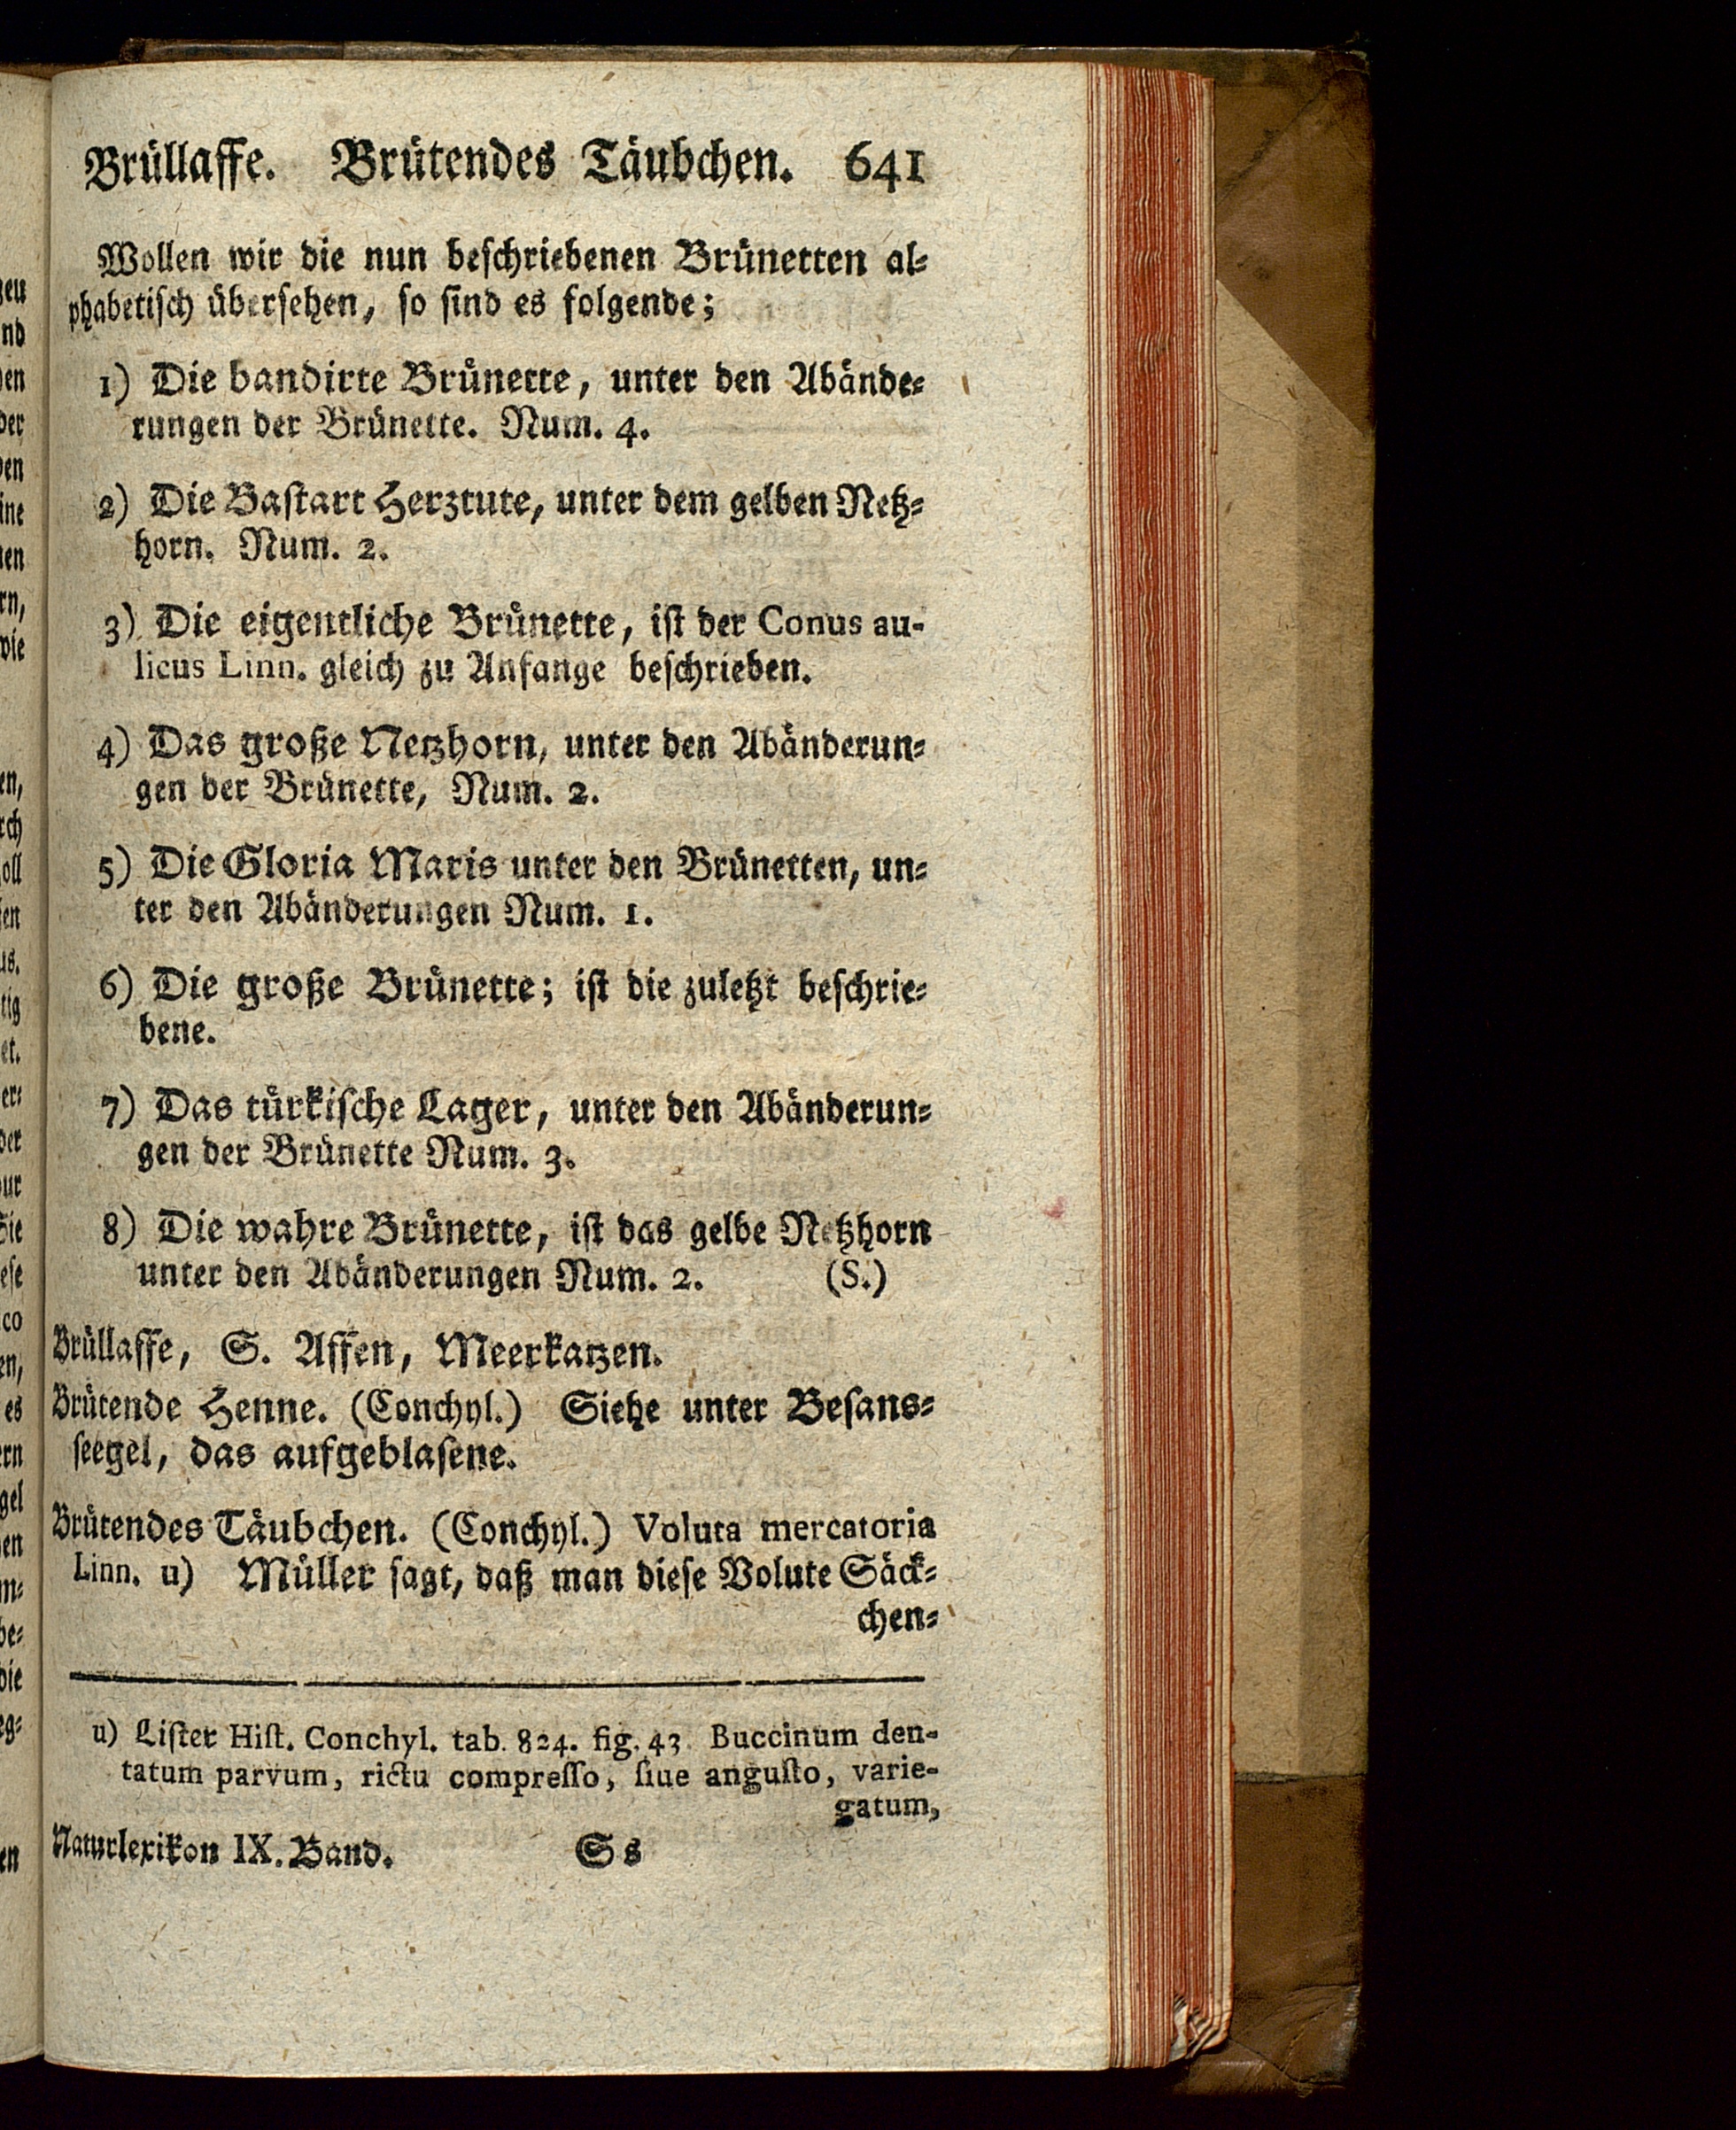 Brüllaffe. Brütendes Täubchen. 641
Wollen wir die nun beschriebenen Brünetten al-
phabetisch übersehen, so sind es folgende;
1) Die bandirte Brünette, unter den Abände-
rungen der Brünette. Num. 4.
2) Die Bastart Herztute, unter dem gelben Netz-
horn. Num. 2.
3) Die eigentliche Brünette, ist der Conus au-
licus Linn. gleich zu Anfange beschrieben.
4) Das große Netzhorn, unter den Abänderun-
gen der Brünette, Num. 2.
5) Die Gloria Maris unter den Brünetten, un-
ter den Abänderungen Num. 1.
6) Die große Brünette; ist die zuletzt beschrie-
bene.
7) Das türkische Lager, unter den Abänderun-
gen der Brünette Num. 3.
8) Die wahre Brünette, ist das gelbe Netzhorn
unter den Abänderungen Num. 2. (S.)
Brüllaffe, S. Affen, Meerkatzen.
Brütende Henne. (Conchyl.) Siehe unter Besans-
seegel, das aufgeblasene.
Brütendes Täubchen. (Conchyl.) Voluta mercatoria
Linn. u) Müller sagt, daß man diese Volute Säck-
chen-
u) Lister Hist. Conchyl. tab. 824. fig. 43. Buccinum den-
tatum parvum, rictu compresso, siue angusto, varie-
gatum,
Naturlexikon IX. Band. Ss